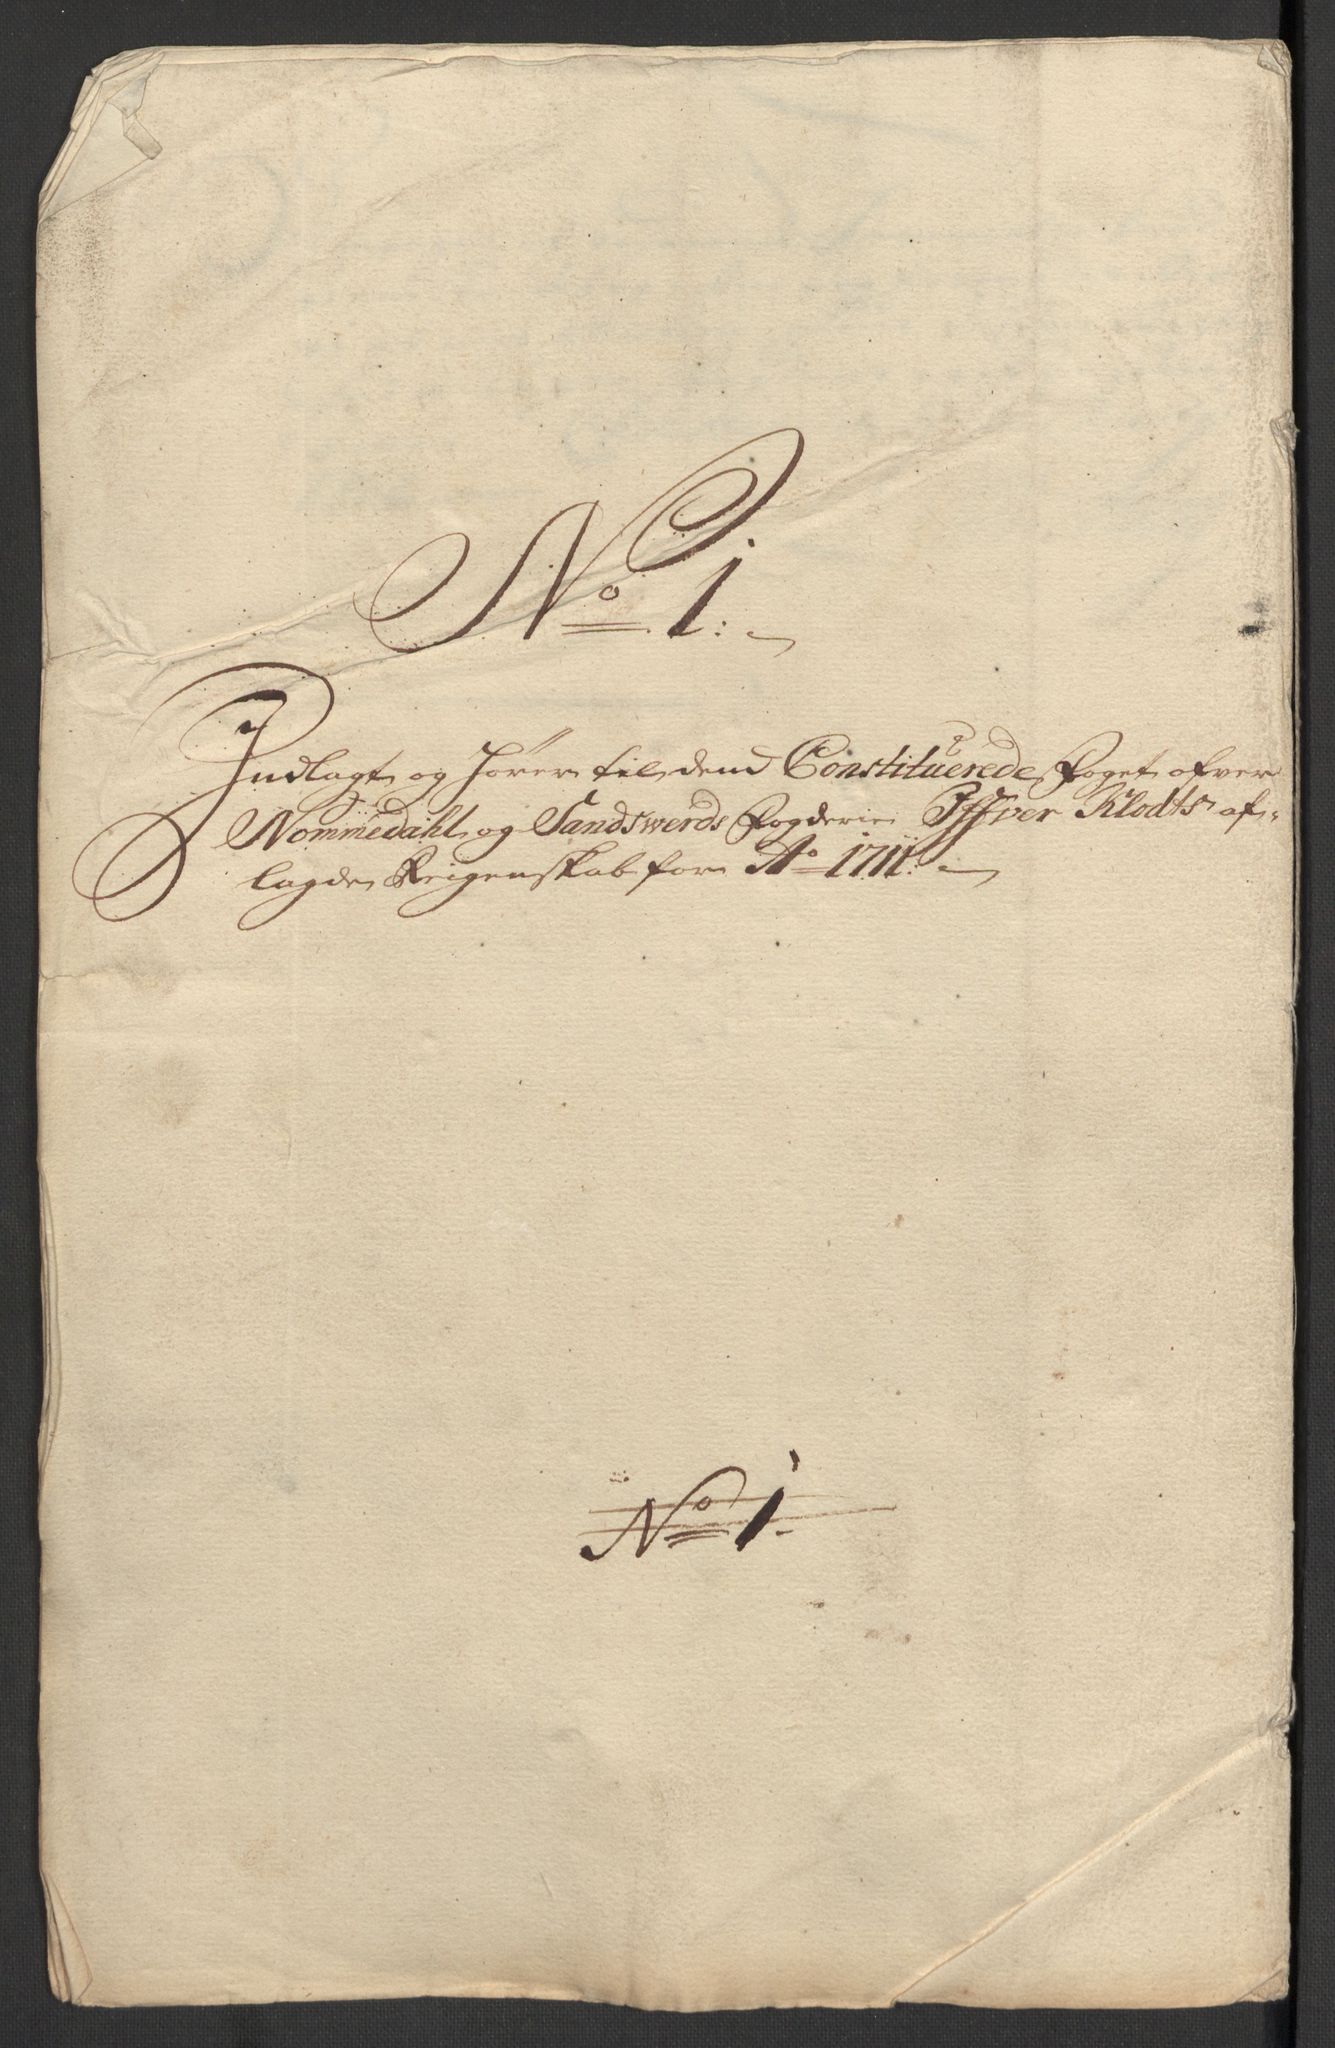 No 1.
Indlagt og hører til dend Constituerede Foget ofver
Nommedahl og Sandswerds Fogderie Iffver Klodts af-
lagde Reigenskab for Ao 1711.
No 1.